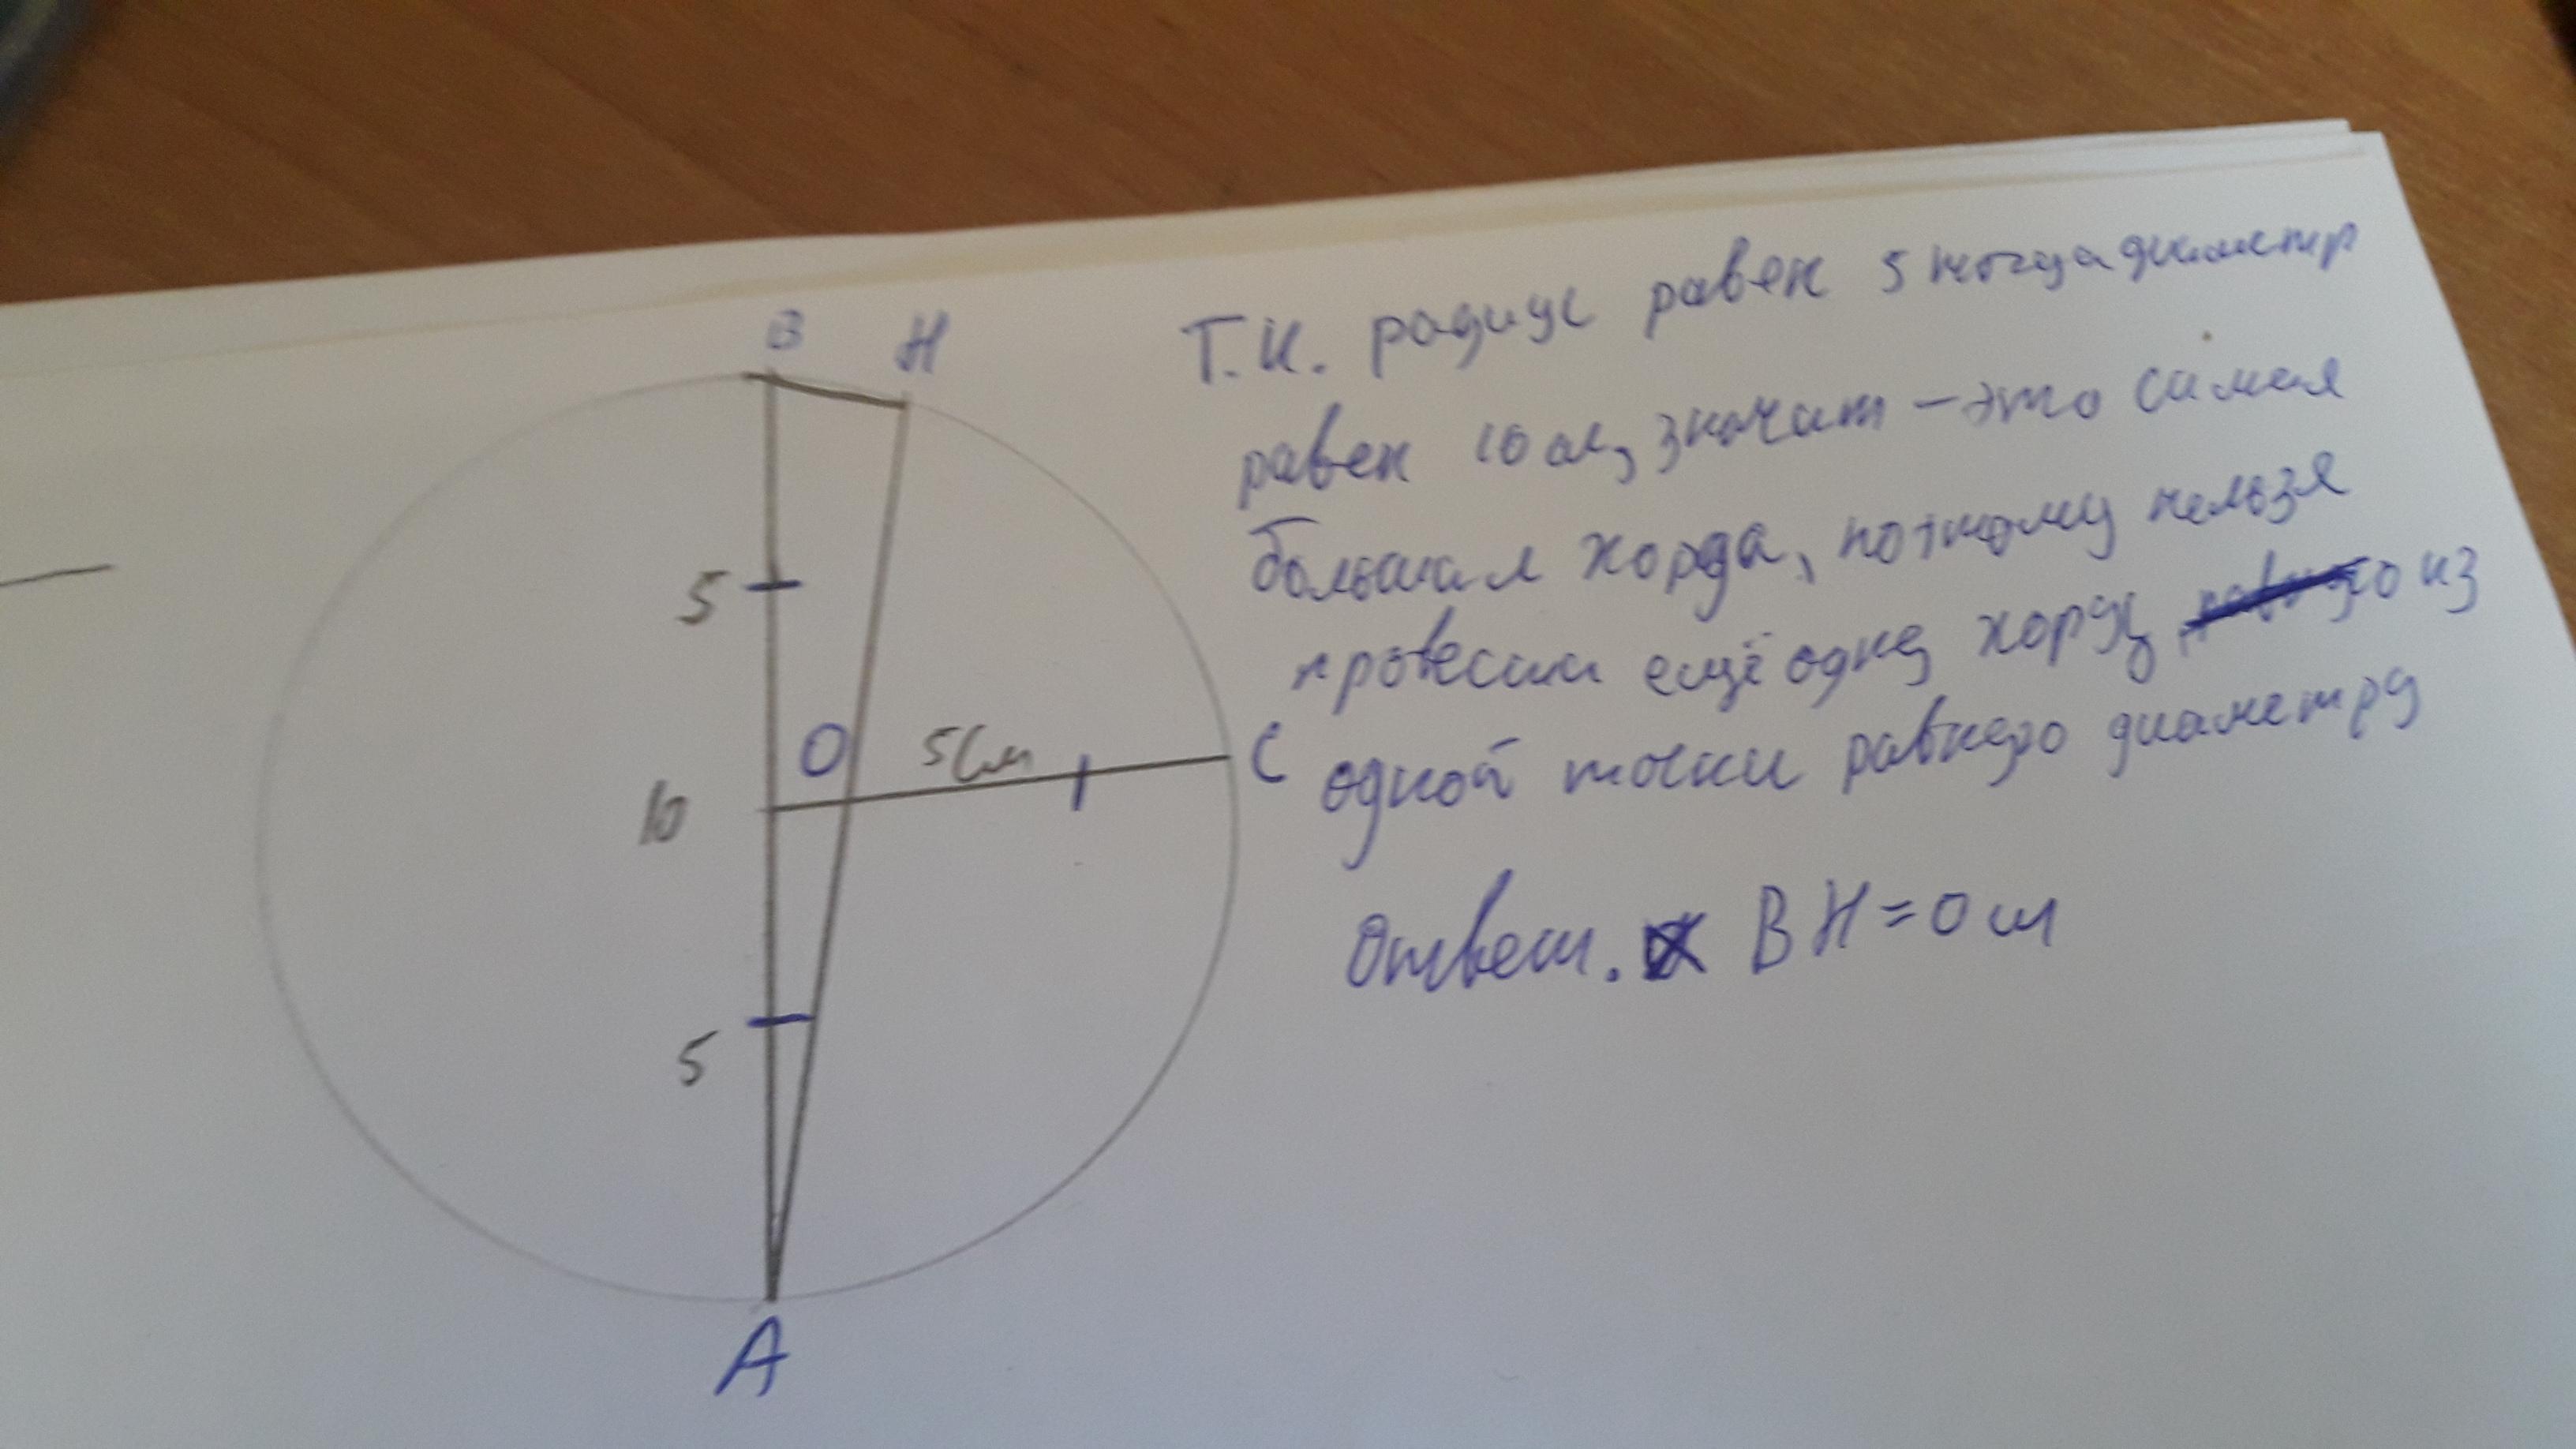 В Н
5
О 5см С
10
5
А
Т.К. радиус равен 5 тогда диаметр
равен 10 см, значит – это самая
большая хорда, поэтому нельзя
провести ещё одну хорду из
одной точки равную диаметру
Ответ. ВН=0см